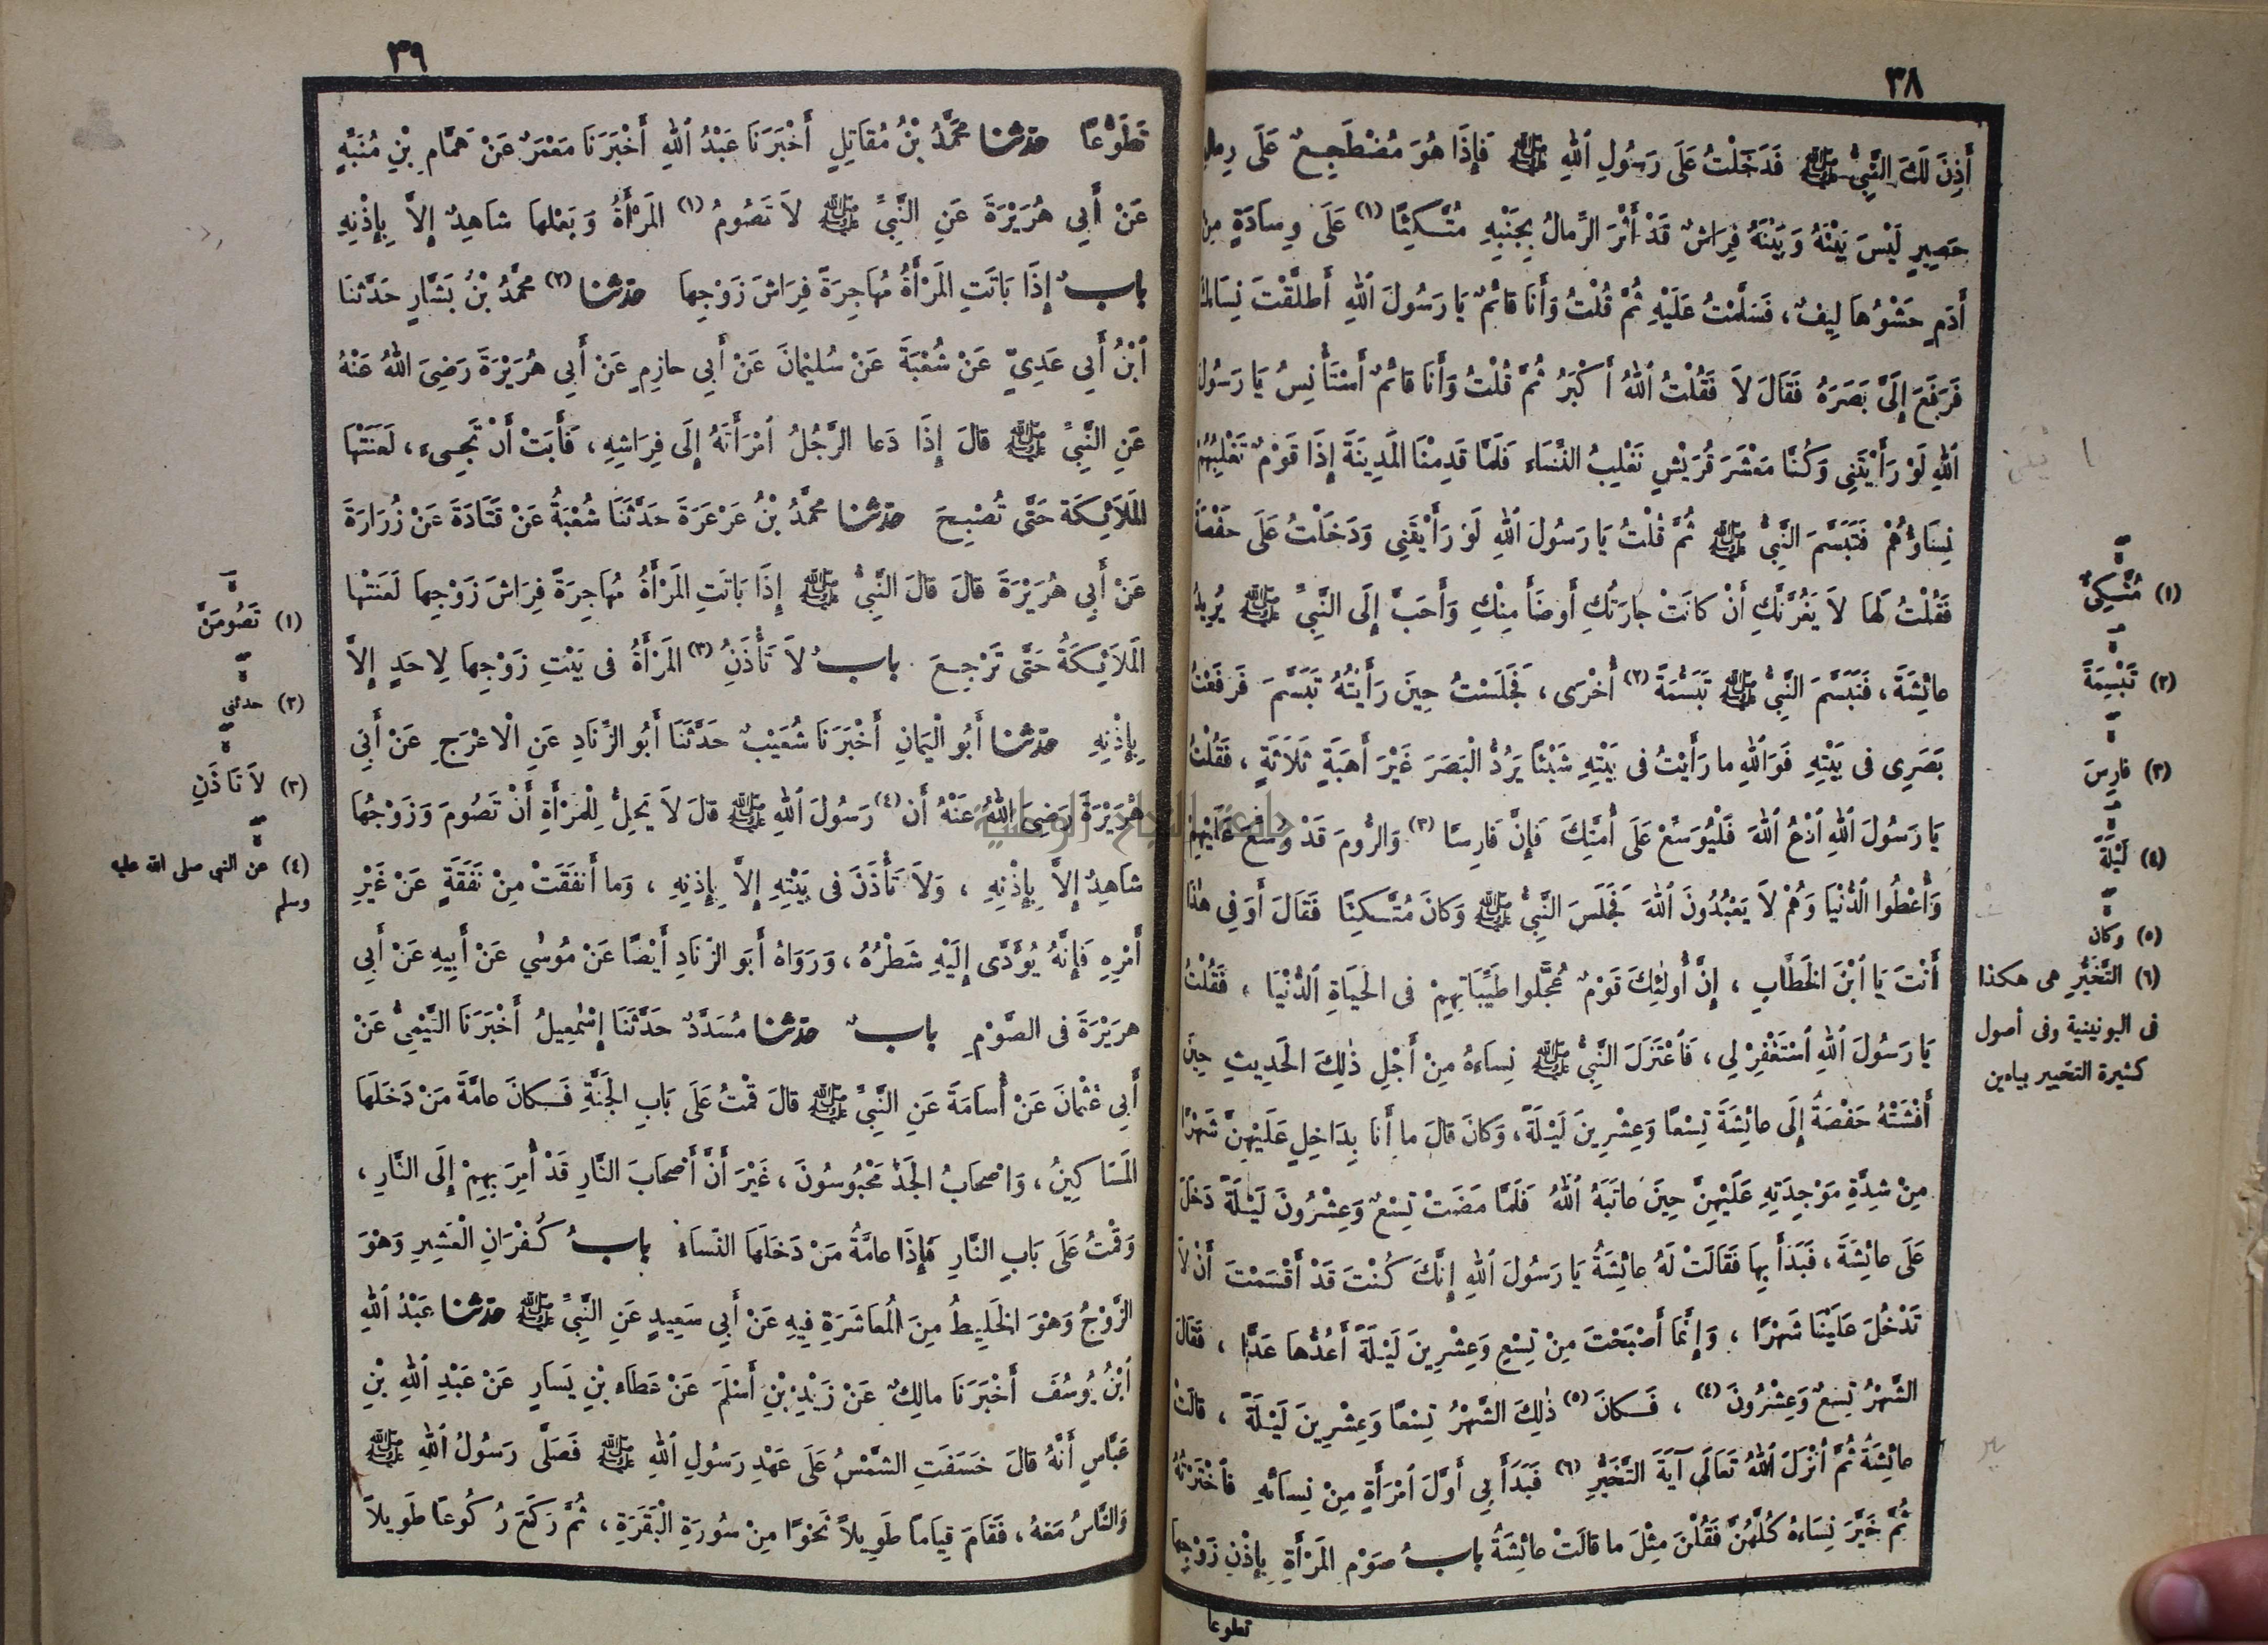 ٣٨
أَذِنَ لَكَ النَّبِيُّ ﷺ فَدَخَلْتُ عَلَى رَسُولِ اللهِ ﷺ فَإِذَا هُوَ مُضْطَجِعٌ عَلَى رِمَالِ
حَصِيرٍ لَيْسَ بَيْنَهُ وَبَيْنَهُ فِرَاشٌ قَدْ أَثَّرَ الرِّمَالُ بِجَنْبِهِ مُتَّكِئًا (١) عَلَى وِسَادَةٍ مِنْ
أَدَمٍ حَشْوُهَا لِيفٌ، فَسَلَّمْتُ عَلَيْهِ ثُمَّ قُلْتُ وَأَنَا قَائِمٌ يَا رَسُولَ اللهِ أَطَلَّقْتَ نِسَاءَكَ
فَرَفَعَ إِلَيَّ بَصَرَهُ فَقَالَ لاَ فَقُلْتُ اللهُ أَكْبَرُ ثُمَّ قُلْتُ وَأَنَا قَائِمٌ أَسْتَأْنِسُ يَا رَسُولَ
اللهِ لَوْ رَأَيْتَنِي وَكُنَّا مَعْشَرَ قُرَيْشٍ نَغْلِبُ النِّسَاءَ فَلَمَّا قَدِمْنَا الْمَدِينَةَ إِذَا قَوْمٌ تَغْلِبُهُمْ
نِسَاؤُهُمْ فَتَبَسَّمَ النَّبِيُّ ﷺ ثُمَّ قُلْتُ يَا رَسُولَ اللهِ لَوْ رَأَيْتَنِي وَدَخَلْتُ عَلَى حَفْصَةَ
فَقُلْتُ لَهَا لاَ يَغُرَّنَّكِ أَنْ كَانَتْ جَارَتُكِ أَوْضَأَ مِنْكِ وَأَحَبَّ إِلَى النَّبِيِّ ﷺ يُرِيدُ
عَائِشَةَ، فَتَبَسَّمَ النَّبِيُّ ﷺ تَبَسُّمَةً (٢) أُخْرَى، فَجَلَسْتُ حِينَ رَأَيْتُهُ تَبَسَّمَ فَرَفَعْتُ
بَصَرِي فِي بَيْتِهِ فَوَاللهِ مَا رَأَيْتُ فِي بَيْتِهِ شَيْئًا يَرُدُّ الْبَصَرَ غَيْرَ أَهَبَةٍ ثَلاَثَةٍ، فَقُلْتُ
يَا رَسُولَ اللهِ ادْعُ اللهَ فَلْيُوَسِّعْ عَلَى أُمَّتِكَ فَإِنَّ فَارِسًا (٣) وَالرُّومَ قَدْ وُسِّعَ عَلَيْهِمْ
وَأُعْطُوا الدُّنْيَا وَهُمْ لاَ يَعْبُدُونَ اللهَ فَجَلَسَ النَّبِيُّ ﷺ وَكَانَ مُتَّكِئًا فَقَالَ أَوَ فِي هٰذَا
أَنْتَ يَا ابْنَ الْخَطَّابِ، إِنَّ أُولٰئِكَ قَوْمٌ عُجِّلُوا طَيِّبَاتِهِمْ فِي الْحَيَاةِ الدُّنْيَا، فَقُلْتُ
يَا رَسُولَ اللهِ اسْتَغْفِرْ لِي، فَاعْتَزَلَ النَّبِيُّ ﷺ نِسَاءَهُ مِنْ أَجْلِ ذٰلِكَ الْحَدِيثِ حِينَ
أَفْشَتْهُ حَفْصَةُ إِلَى عَائِشَةَ تِسْعًا وَعِشْرِينَ لَيْلَةً، وَكَانَ قَالَ مَا أَنَا بِدَاخِلٍ عَلَيْهِنَّ شَهْرًا
مِنْ شِدَّةِ مَوْجِدَتِهِ عَلَيْهِنَّ حِينَ عَاتَبَهُ اللهُ فَلَمَّا مَضَتْ تِسْعٌ وَعِشْرُونَ لَيْلَةً دَخَلَ
عَلَى عَائِشَةَ، فَبَدَأَ بِهَا فَقَالَتْ لَهُ عَائِشَةُ يَا رَسُولَ اللهِ إِنَّكَ كُنْتَ قَدْ أَقْسَمْتَ أَنْ لاَ
تَدْخُلَ عَلَيْنَا شَهْرًا، وَإِنَّمَا أَصْبَحْتَ مِنْ تِسْعٍ وَعِشْرِينَ لَيْلَةً أَعُدُّهَا عَدًّا، فَقَالَ
الشَّهْرُ تِسْعٌ وَعِشْرُونَ (٤)، فَكَانَ (٥) ذٰلِكَ الشَّهْرُ تِسْعًا وَعِشْرِينَ لَيْلَةً، قَالَتْ
عَائِشَةُ ثُمَّ أَنْزَلَ اللهُ تَعَالَى آيَةَ التَّخَيُّرِ (٦) فَبَدَأَ بِي أَوَّلَ امْرَأَةٍ مِنْ نِسَائِهِ فَاخْتَرْتُهُ
ثُمَّ خَيَّرَ نِسَاءَهُ كُلَّهُنَّ فَقُلْنَ مِثْلَ مَا قَالَتْ عَائِشَةُ بابُ صَوْمِ الْمَرْأَةِ بِإِذْنِ زَوْجِهَا
تطوعا
(١) مُتَّكِئٌ
(٢) تَبْسِمَةً
(٣) فَارِسَ
(٤) لَيْلَةً
(٥) وكان
(٦) التَّخَيُّرِ هى هكذا
فى اليونينية وفى أصول
كثيرة التخيير بياءين
٣٩
تَطَوُّعًا حدثنا مُحَمَّدُ بْنُ مُقَاتِلٍ أَخْبَرَنَا عَبْدُ اللهِ أَخْبَرَنَا مَعْمَرٌ عَنْ هَمَّامِ بْنِ مُنَبِّهٍ
عَنْ أَبِي هُرَيْرَةَ عَنِ النَّبِيِّ ﷺ لاَ تَصُومُ (١) الْمَرْأَةُ وَبَعْلُهَا شَاهِدٌ إِلاَّ بِإِذْنِهِ
بابٌ إِذَا بَاتَتِ الْمَرْأَةُ مُهَاجِرَةً فِرَاشَ زَوْجِهَا حدثنا (٢) مُحَمَّدُ بْنُ بَشَّارٍ حَدَّثَنَا
ابْنُ أَبِي عَدِيٍّ عَنْ شُعْبَةَ عَنْ سُلَيْمَانَ عَنْ أَبِي حَازِمٍ عَنْ أَبِي هُرَيْرَةَ رَضِيَ اللهُ عَنْهُ
عَنِ النَّبِيِّ ﷺ قَالَ إِذَا دَعَا الرَّجُلُ امْرَأَتَهُ إِلَى فِرَاشِهِ، فَأَبَتْ أَنْ تَجِيءَ، لَعَنَتْهَا
الْمَلاَئِكَة حَتَّى تُصْبِحَ حدثنا مُحَمَّدُ بْنُ عَرْعَرَةَ حَدَّثَنَا شُعْبَةُ عَنْ قَتَادَةَ عَنْ زُرَارَةَ
عَنْ أَبِي هُرَيْرَةَ قَالَ قَالَ النَّبِيُّ ﷺ إِذَا بَاتَتِ الْمَرْأَةُ مُهَاجِرَةً فِرَاشَ زَوْجِهَا لَعَنَتْهَا
الْمَلاَئِكَةُ حَتَّى تَرْجِعَ. بابٌ لاَ تَأْذَنُ (٣) الْمَرْأَةُ فِي بَيْتِ زَوْجِهَا لِأَحَدٍ إِلاَّ
بِإِذْنِهِ حدثنا أَبُو الْيَمَانِ أَخْبَرَنَا شُعَيْبٌ حَدَّثَنَا أَبُو الزِّنَادِ عَنِ الْأَعْرَجِ عَنْ أَبِي
هُرَيْرَةَ رَضِيَ اللهُ عَنْهُ أَن (٤) رَسُولَ اللهِ ﷺ قَالَ لاَ يَحِلُّ لِلْمَرْأَةِ أَنْ تَصُومَ وَزَوْجُهَا
شَاهِدٌ إِلاَّ بِإِذْنِهِ، وَلاَ تَأْذَنَ فِي بَيْتِهِ إِلاَّ بِإِذْنِهِ، وَمَا أَنْفَقَتْ مِنْ نَفَقَةٍ عَنْ غَيْرِ
أَمْرِهِ فَإِنَّهُ يُؤَدَّى إِلَيْهِ شَطْرُهُ، وَرَوَاهُ أَبُو الزِّنَادِ أَيْضًا عَنْ مُوسٰى عَنْ أَبِيهِ عَنْ أَبِي
هُرَيْرَةَ فِي الصَّوْمِ بابٌ حدثنا مُسَدَّدٌ حَدَّثَنَا إِسْمٰعِيلُ أَخْبَرَنَا التَّيْمِيُّ عَنْ
أَبِي عُثْمَانَ عَنْ أُسَامَةَ عَنِ النَّبِيِّ ﷺ قَالَ قُمْتُ عَلَى بَابِ الْجَنَّةِ فَكَانَ عَامَّةَ مَنْ دَخَلَهَا
الْمَسَاكِينُ، وَأَصْحَابُ الْجَدِّ مَحْبُوسُونَ، غَيْرَ أَنَّ أَصْحَابَ النَّارِ قَدْ أُمِرَ بِهِمْ إِلَى النَّارِ،
وَقُمْتُ عَلَى بَابِ النَّارِ فَإِذَا عَامَّةُ مَنْ دَخَلَهَا النِّسَاءُ بابُ كُفْرَانِ الْعَشِيرِ وَهْوَ
الزَّوْجُ وَهْوَ الْخَلِيطُ مِنَ الْمُعَاشَرَةِ فِيهِ عَنْ أَبِي سَعِيدٍ عَنِ النَّبِيِّ ﷺ حدثنا عَبْدُ اللهِ
ابْنُ يُوسُفَ أَخْبَرَنَا مَالِكٌ عَنْ زَيْدِ بْنِ أَسْلَمَ عَنْ عَطَاءِ بْنِ يَسَارٍ عَنْ عَبْدِ اللهِ بْنِ
عَبَّاسٍ أَنَّهُ قَالَ خَسَفَتِ الشَّمْسُ عَلَى عَهْدِ رَسُولِ اللهِ ﷺ فَصَلَّى رَسُولُ اللهِ ﷺ
وَالنَّاسُ مَعَهُ، فَقَامَ قِيَامًا طَوِيلاً نَحْوًا مِنْ سُورَةِ الْبَقَرَةِ، ثُمَّ رَكَعَ رُكُوعًا طَوِيلاً
(١) تَصُومَنَّ
(٢) حدثنى
(٣) لاَ تَأْذَنِ
(٤) عن النبى صلى الله عليه
وسلم
جامعة النجاح الوطنية